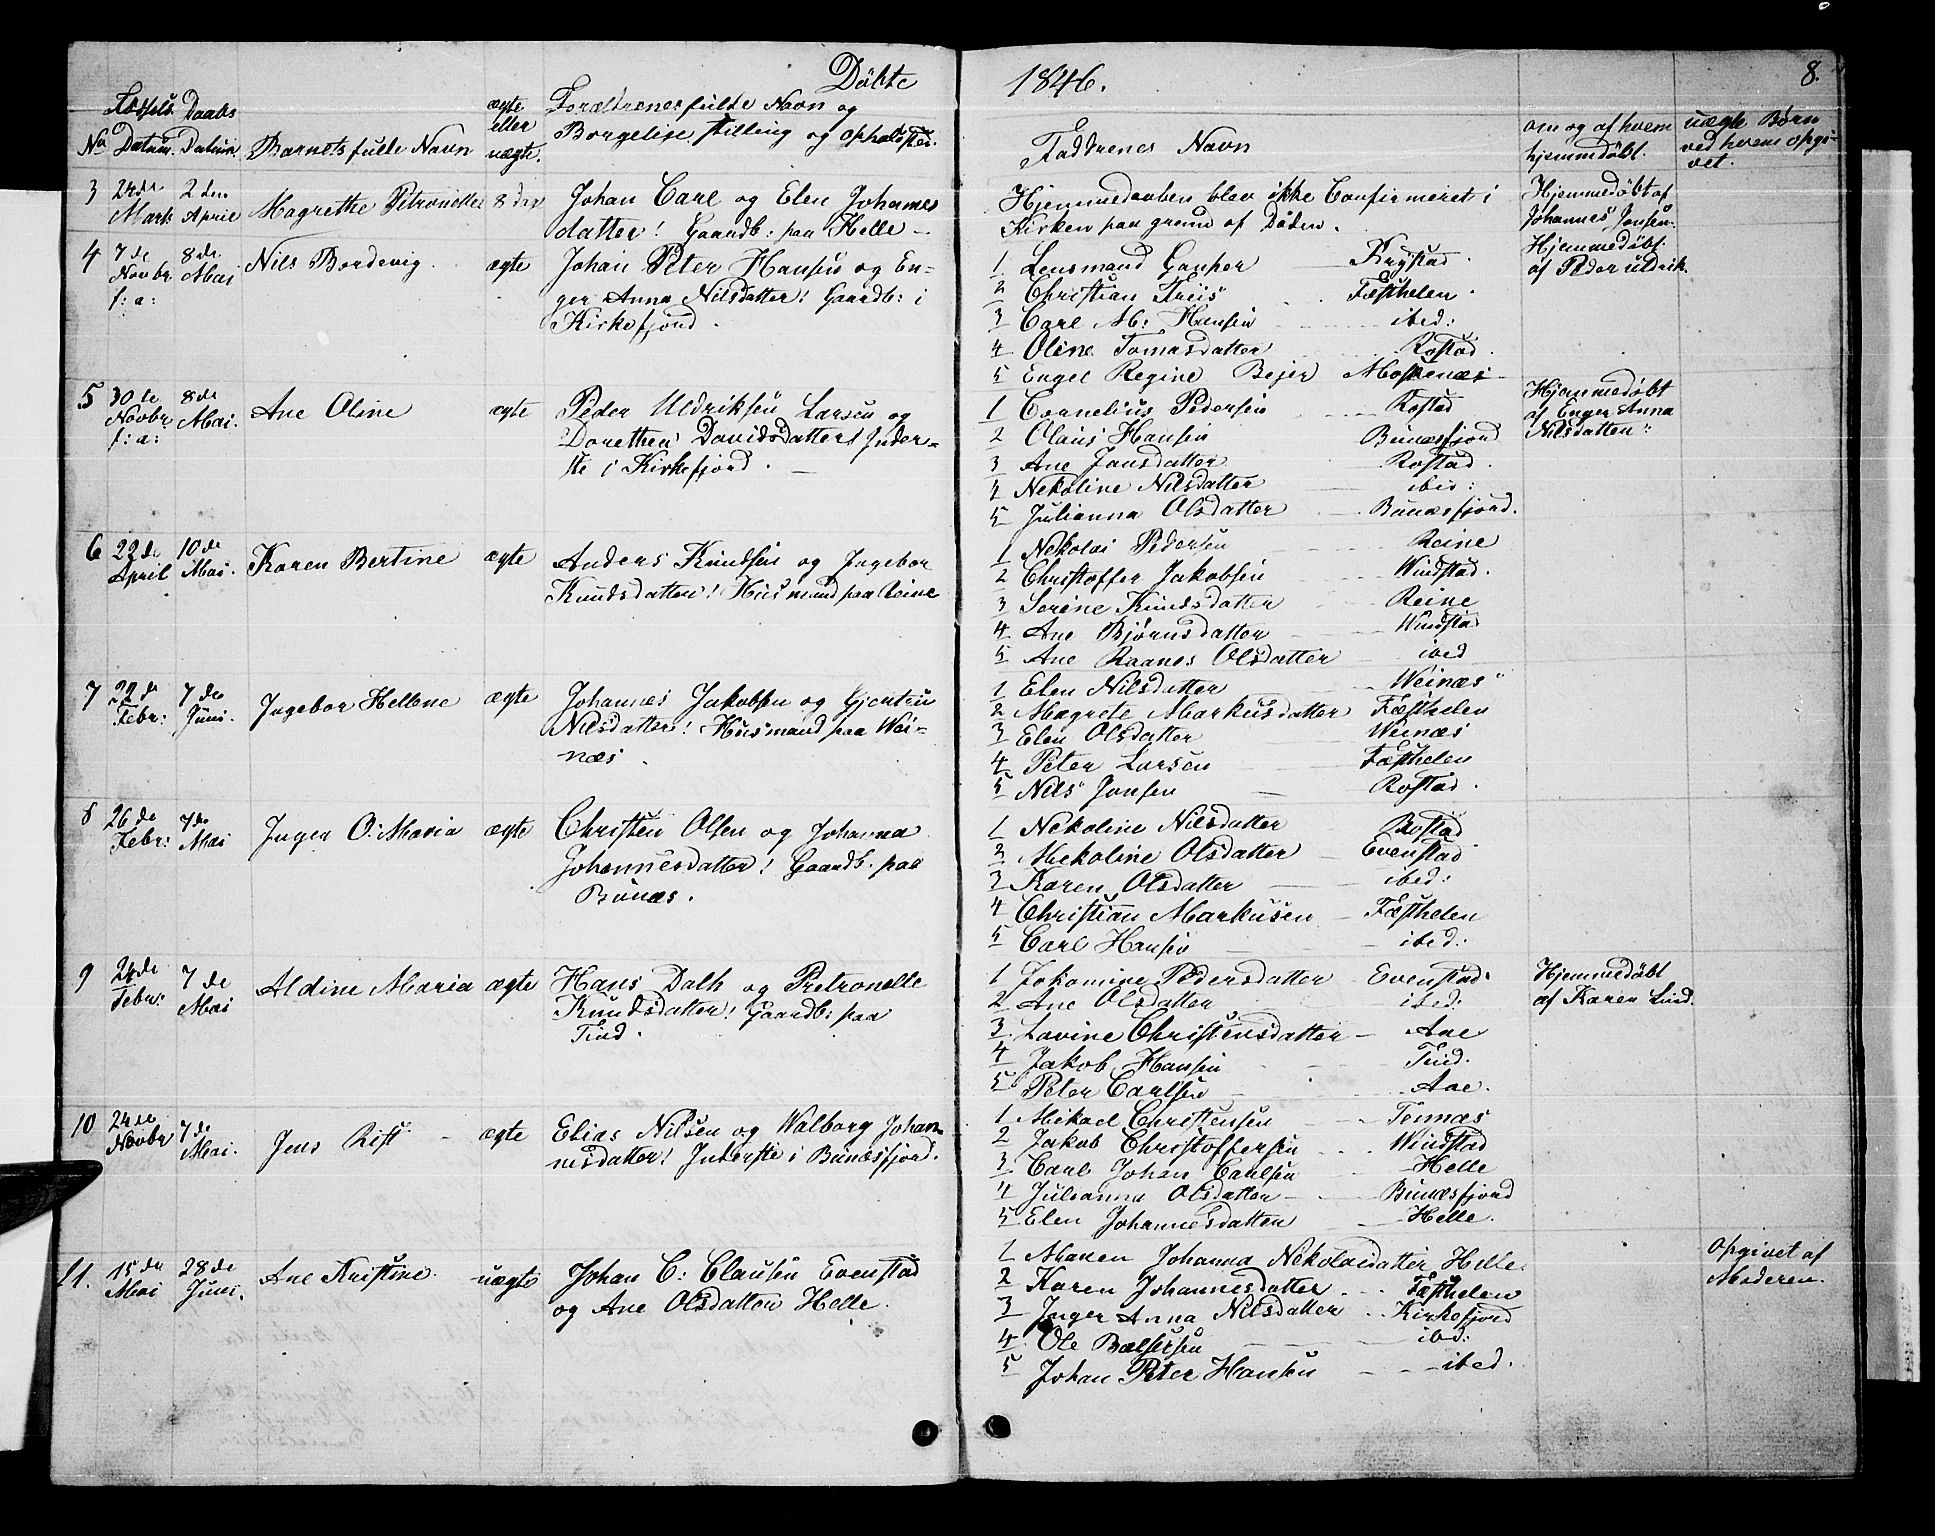 Döbte
Fødsels Daabs ægte Forældrenes fulde Navn og
No Datum. Datum. Barnets fulle Navn eller uægte. Borgelige stilling og opholdsted.
3 24de Mark 2den April Magrethe Petronelle 8 dax Johan Carl og Elen Johannes
datter! Gaardb: paa Helle
4 7de Novbr f: a: 8de Mai Nils Bordevig ægte Johan Peter Hansen og En-
ger Anna Nilsdatter! Gaardb: i
Kirkefjord.
5 30de Novbr f: a: 8de Mai. Ane Oline ægte Peder Uldriksen Larsen og
Dorethea Davidsdatter! Inder-
ste i Kirkefjord.
6 22de April 10de Mai. Karen Bertine ægte Anders Knudsen og Ingebor
Knudsdatter! Husmand paa Reine
7 22de Febr: 7de Juni. Ingebor Hellene ægte Johannes Jakobsen og Gjertru
Nilsdatter! Husmand paa Wei-
næs.
8 26de Febr: 7de Mai Inger O: Maria ægte Christen Olsen og Johanna
Johannesdatter! Gaardb. paa
Bunæs.
9 24de Febr: 7de Mai Aldine Maria ægte Hans Dalh og Pretronelle
Knudsdatter! Gaardb: paa
Tind.
10 24de Novbr 7de Mai. Jens Rist ægte Elias Nilsen og Walborg Johan-
nesdatter! Inderste i Bunæsfjord.
11. 15de Mai 28de Juni. Ane Kristine. uægte Johan C: Clausen Evenstad
og Ane Olsdatter Helle.
1846. 8.
Faddrenes Navn
om og af hvem hjemmdøbt.
uægte Børn ved hvem opgivet.
Hjemmedaaben blev ikke Confirmeret i
Kirken paa grund af Døden.
Hjemmedøbt af
Johannes Jensen.
1 Lensmand Ganher Krystad.
2 Christian Friis Fæsthelen.
3 Carl M: Hansen ibed:
4 Oline Tomasdatter Rostad.
5 Engel Regine Bejer Moskenæs
Hjemmedøbt
af Peder Uldrik.
1 Cornelius Pedersen Rostad
2 Olaus Hansen Bunæsfjord
3 Ane Jansdatter Rostad.
4 Nekoline Nilsdatter ibid:
5 Julianna Olsdatter Bunæsfjord.
Hjemmedøbt
af Enger Anna
Nilsdatter:
1 Nekolai Pedersen Reine
2 Christoffer Jakobsen Windstad.
3 Serine Knudsdatter Reine
4 Ane Bjørnsdatter Windsta
5 Ane Raanes Olsdatter ibed
1 Elen Nilsdatter Weinæs
2 Magrete Markusdatter Fæsthelen
3 Elen Olsdatter Weinæs
4 Peter Larsen Fæsthelen
5 Nils Jonsen Rostad.
1 Nekoline Nilsdatter Rostad
2 Mekoline Olsdatter Evenstad
3 Karen Olsdatter ibed:
4 Christian Markusen Fæsthelen
5 Carl Hansen ibed:
1 Johamine Pedersdatter Evenstad.
2 Ane Olsdatter ibed:
3 Lovine Christensdatter Aae
4 Jakob Hansen Tind.
5 Peter Carlsen Aae.
Hjemmedøbt
af Karen Lind.
1 Mikael Christensen Tennæs
2 Jakob Christoffersen Windstad
3 Carl Johan Carlsen Helle
4 Julianna Olsdatter Bunæsfjord
5 Elen Johannesdatter Helle.
1 Maren Johanna Nekolaidatter Helle.
2 Karen Johannesdatter Fæsthelen
3 Inger Anna Nilsdatter Kirkefjord
4 Ole Balsersen ibd:
5 Johan Peter Hansen ibed.
Opgivet af
Moderen.